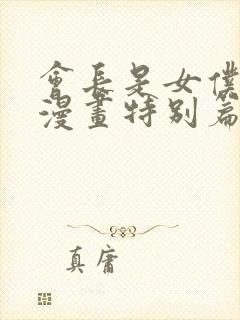 會長是女僕
漫畫特別篇
真庸